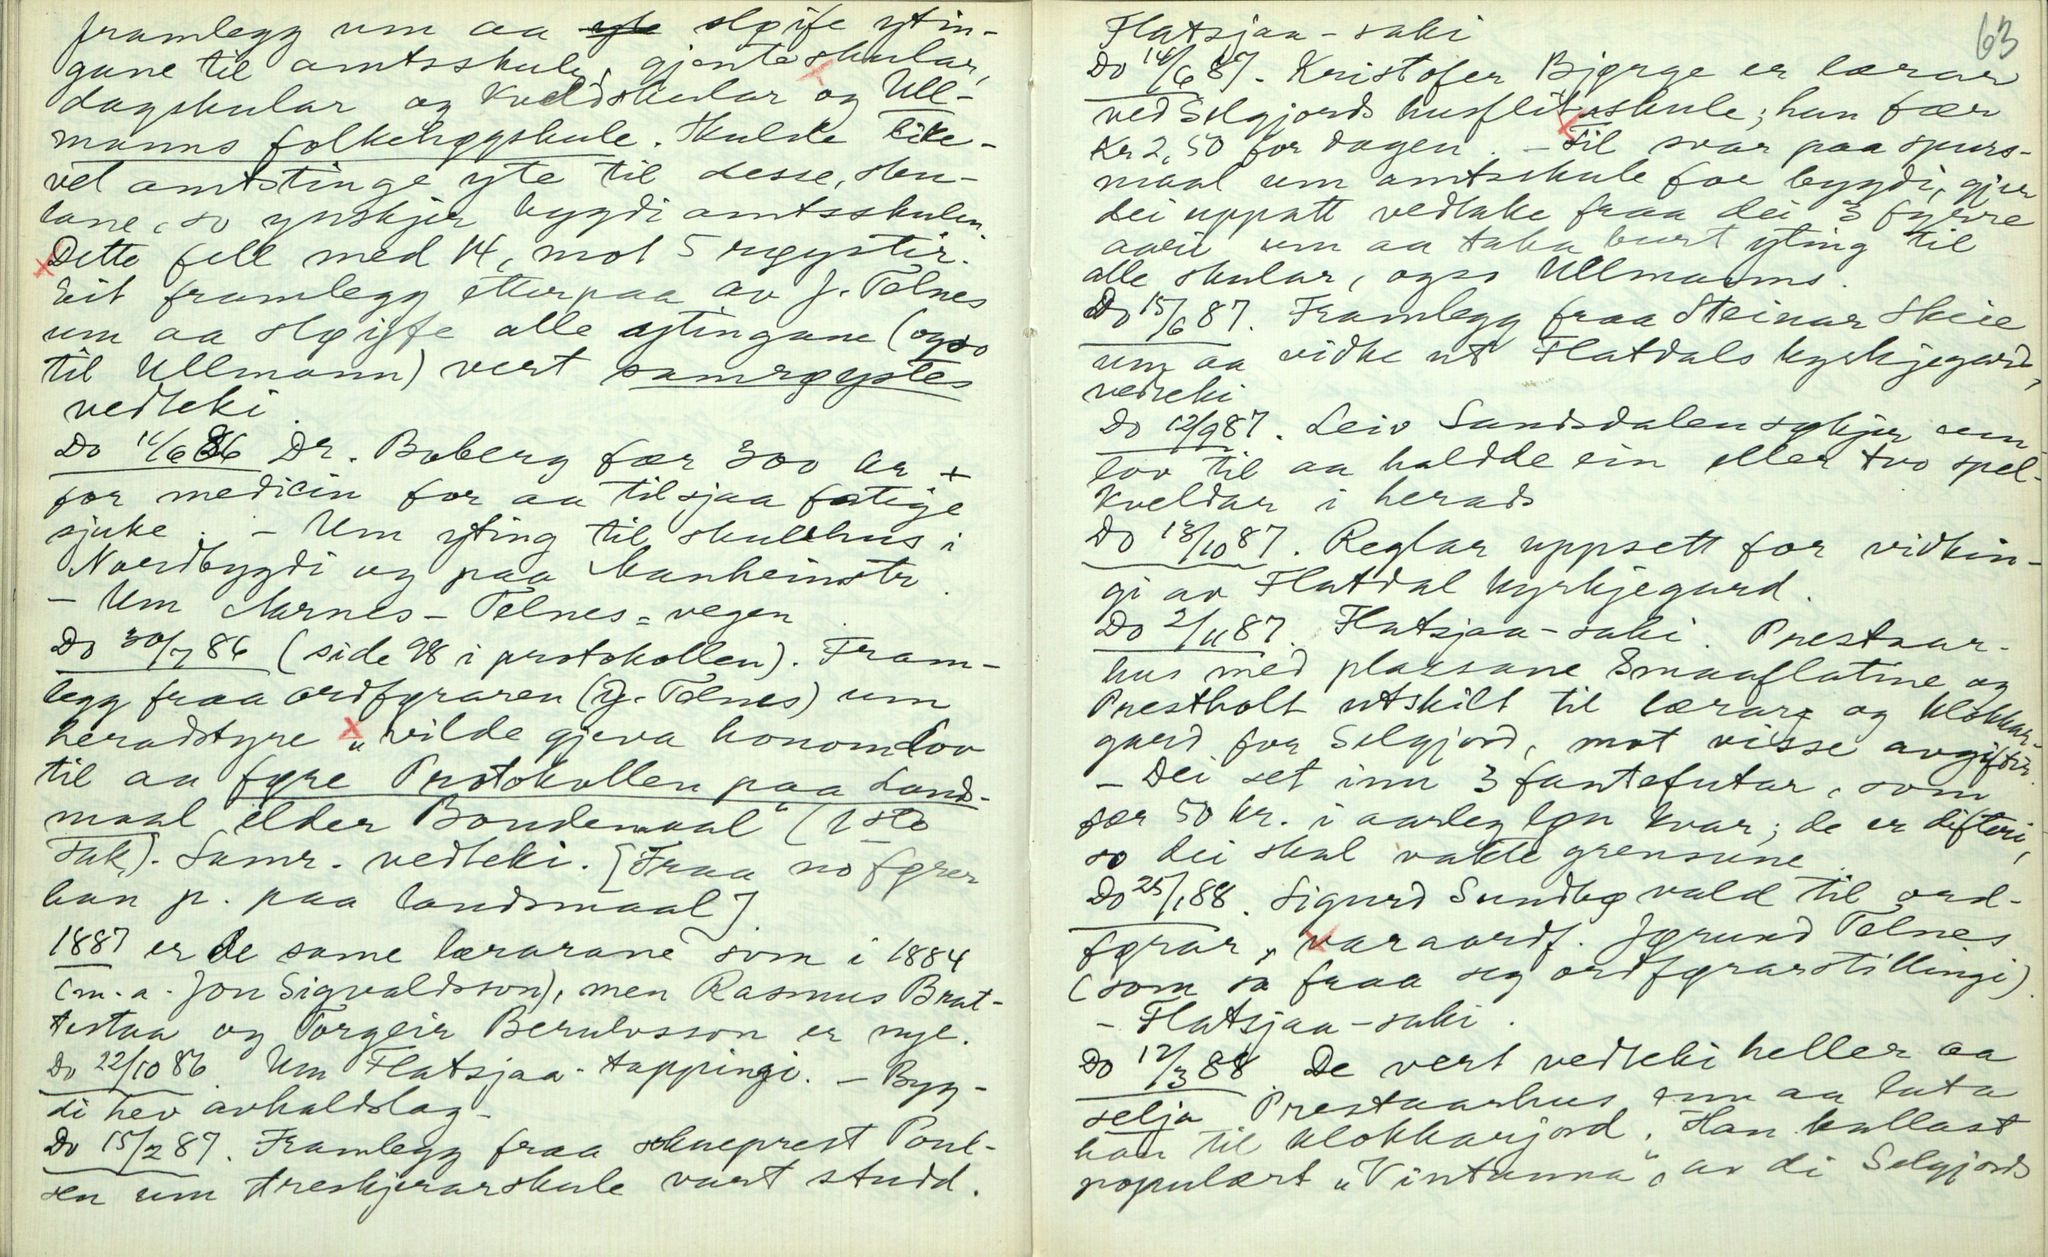 framlegg um aa yte sløife ytin-
gane til amtsskule, gjenteskular,
dagskular og Kveldskular og Ull-
manns folkehøgskule. Skulde like-
vel amtstinge yte til desse sku-
lane, so ynskjer bygdi amtsskulen.
Dette fell med 14, mot 5 røystir.
Eit framlegg etterpaa av J. Telnes
um aa sløife alle ytingane (ogso
til Ullmann) vert samrøystes
vedteki.
Do 11/6 86 Dr. Boberg fær 300 kr +
for medicin for aa tilsjaa fatige
sjuke. - Um yting til skulehus i
Nordbygdi og paa Manheimstr.
- Um Aarnes - Telnes = vegen
Do 30/7 86 (side 98 i protokollen). Fram-
legg fraa ordføraren (J. Telnes) um
heradstyre „vilde gjeva honom Lov
til aa føre Protokollen paa Land-
maal elder Bondemaal" (1ste
sak). Samr. vedteki. [Fraa no fører
han p. paa landsmaal]
1887 er de same lærarane som i 1884
(m. a. Jon Sigvaldsson), men Rasmus Brat-
testaa og Torgeir Berulvsson er nye.
Do 22/10 86. Um Flatsjaa-tappingi. - Byg-
di hev avhaldslag -
Do 15/2 87. Framlegg fraa sokneprest Poul-
sen um treskjerarskule vart studd.
63
Flatsjaa-saki
Do 14/6 87. Kristofer Bjørge er lærar
ved Selgjords husflitsskule; han fær
Kr 2,50 for dagen. - Til svar paa spurs-
maal um amtskule for bygdi, gjer
dei uppatt vedtake fraa dei 3 fyrre
aari um aa taka burt yting til
alle skular, ogso Ullmanns.
Do 15/6 87. Framlegg fraa Steinar Skeie
um aa vidke ut Flatdals kyrkjegard,
vedteki
Do 12/9 87. Leiv Sandsdalen sykjer um
lov til aa haldde ein eller two spel-
kveldar i herads
Do 13/10 87. Reglar uppsett for vidkin-
gi av Flatdal kyrkjegard.
Do 2/11 87. Flatsjaa-saki. Prestaar-
hus med plassane Smaaflatine og
Prestholt utskilt til lærar og klokkar-
gard for Selgjord, mot visse avgiftir.
- Dei set inn 3 fantefutar, som
fær 50 kr. i aarleg løn kvar; de er difteri,
so dei skal vakte grensune
Do 25/1 88. Sigurd Sundbø vald til ord-
førar, varaordf. Jørund Telnes
(som sa fraa seg ordførarstillingi).
- Flatsjaa-saki.
Do 12/3 88 De vert vedteki heller aa
selja Prestaarhus enn aa lata
han til klokkarjord. Han kallast
populært „Vintanna", av di Selgjords